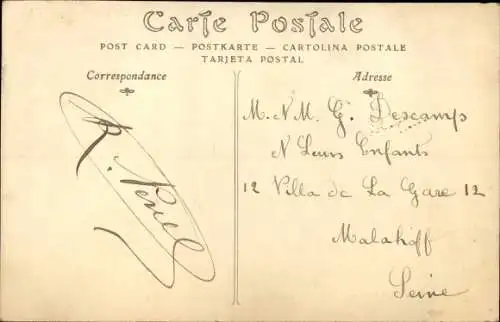 Carte Postale
POST CARD — POSTKARTE — CARTOLINA POSTALE
TARJETA POSTAL
Correspondance
Adresse
R.
M. N M. G. Descamps
N Leurs Enfants
12 Villa de La Gare 12
Malakoff
Seine